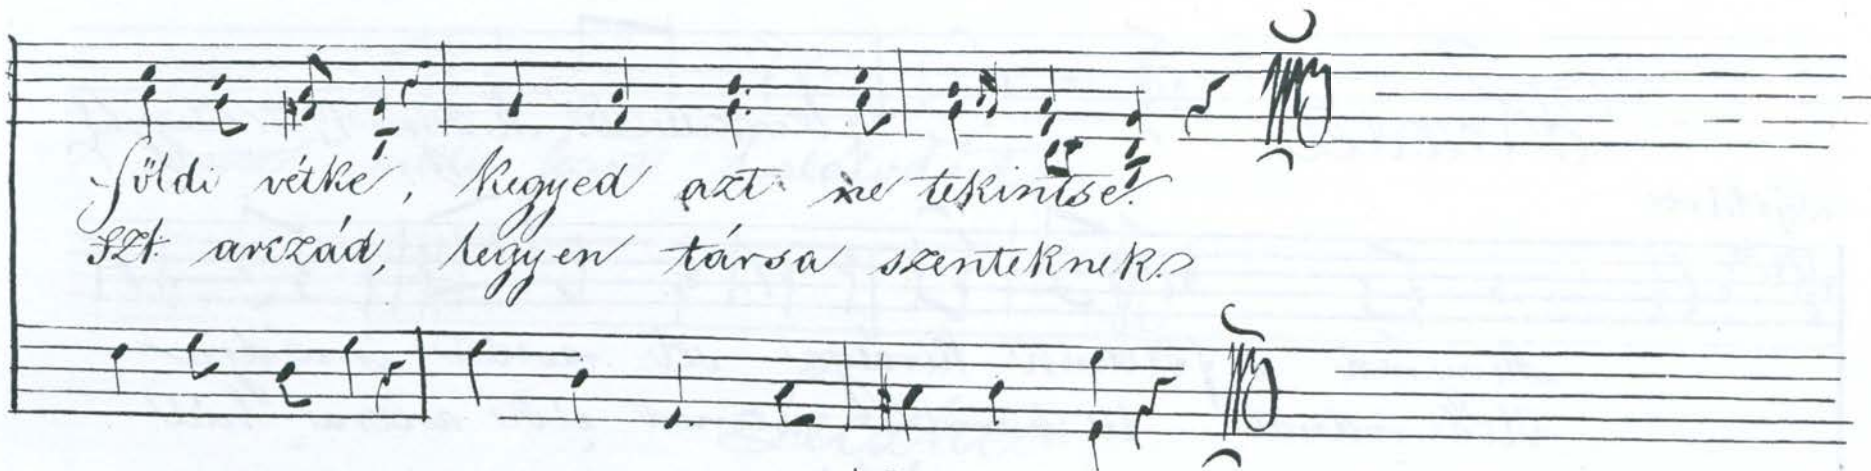 földi vétke, kegyed azt ne tekintse.
szt. arczád, legyen társa szenteknek.